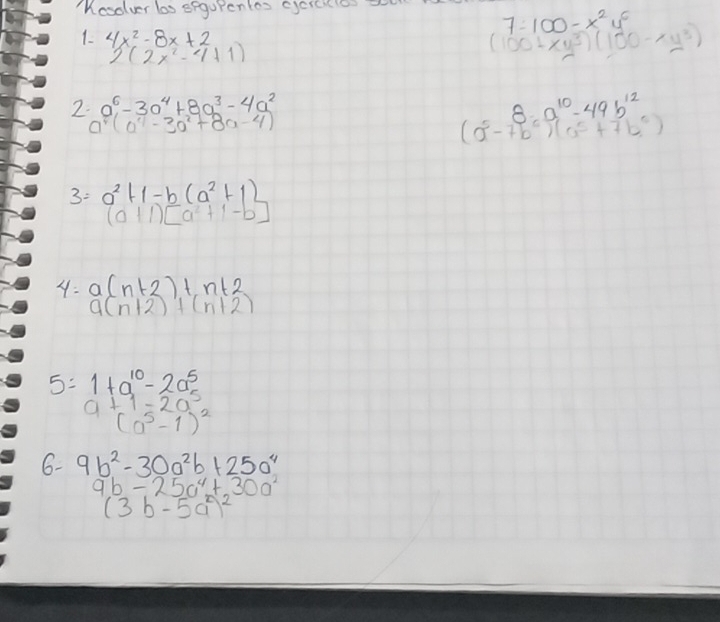 Resolver los siguientes ejercicios
1- 4x² - 8x + 2
2(2x² - 4 + 1)
2- a⁶ - 3a⁴ + 8a³ - 4a²
a²(a⁴ - 3a² + 8a - 4)
3= a² + 1 - b (a² + 1)
(a + 1)[a² + 1 - b]
4- a(n+2) + n+2
a(n+2) + (n+2)
5= 1 + a¹⁰ - 2a⁵
a + 1 - 2a⁵
(a⁵ - 1)²
6- 9b² - 30a²b + 25a⁴
9b - 25a⁴ + 30a²
(3b - 5a²)²
7= 100 - x²y⁶
(100 + xy³)(100 - xy³)
8= a¹⁰ - 49b¹²
(a⁵ - 7b⁶)(a⁵ + 7b⁶)